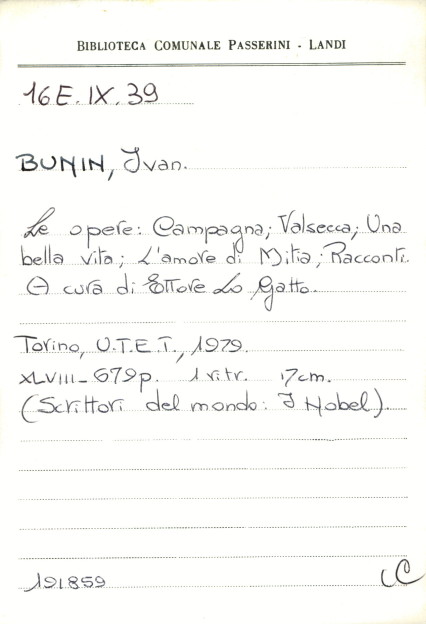 BIBLIOTECA COMUNALE PASSERINI - LANDI
16E.IX.39
BUNIN, Ivan.
Le opere: Campagna; Valsecca; Una
bella vita; L'amore di Mitia; Racconti.
A cura di Ettore Lo Gatto.
Torino, U.T.E.T., 1979.
XLVIII-679p. 1 ritr. 17cm.
(Scrittori del mondo: I Nobel).
191859